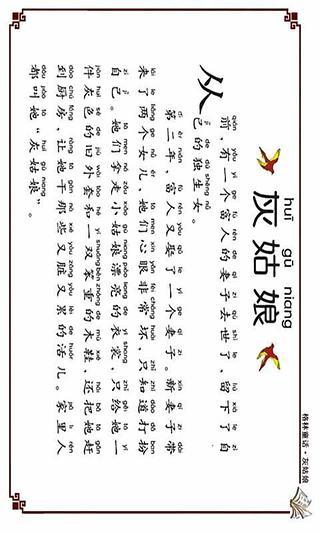 huī gū niang
灰姑娘
qián yǒu yí gè fù rén de qī zi qù shì le liú xià le zì
从前，有一个富人的妻子去世了，留下了自
jǐ de dú shēng nǚ
己的独生女。
dì èr nián fù rén yòu qǔ le yí gè qī zi xīn qī zi dài
第二年，富人又娶了一个妻子。新妻子带
lái le liǎng gè nǚ ér tā men xīn yǎn fēi cháng huài zhǐ zhī dào dǎ bàn
来了两个女儿，她们心眼非常坏，只知道打扮
zì jǐ tā men ná zǒu xiǎo gū niang piào liang de yī shang zhǐ gěi tā yí
自己。她们拿走小姑娘漂亮的衣裳，只给她一
jiàn huī sè de jiù wài tào hé yì shuāng bèn zhòng de mù xié hái bǎ tā gǎn
件灰色的旧外套和一双笨重的木鞋，还把她赶
dào chú fáng ràng tā gàn nà xiē yòu zāng yòu lèi de huó er jiā lǐ rén
到厨房，让她干那些又脏又累的活儿。家里人
dōu jiào tā huī gū niang
都叫她“灰姑娘”。
格林童话·灰姑娘